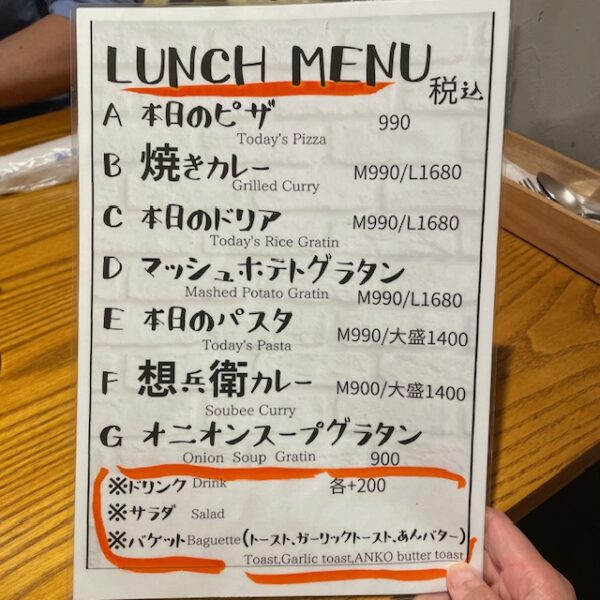 LUNCH MENU
税込
A 本日のピザ 990
Today's Pizza
B 焼きカレー M990/L1680
Grilled Curry
C 本日のドリア M990/L1680
Today's Rice Gratin
D マッシュポテトグラタン
Mashed Potato Gratin M990/L1680
E 本日のパスタ M990/大盛1400
Today's Pasta
F 想兵衛カレー M900/大盛1400
Soubee Curry
G オニオンスープグラタン
Onion Soup Gratin 900
※ドリンク Drink 各+200
※サラダ Salad
※バゲット Baguette (トースト、ガーリックトースト、あんバター)
Toast,Garlic toast,ANKO butter toast